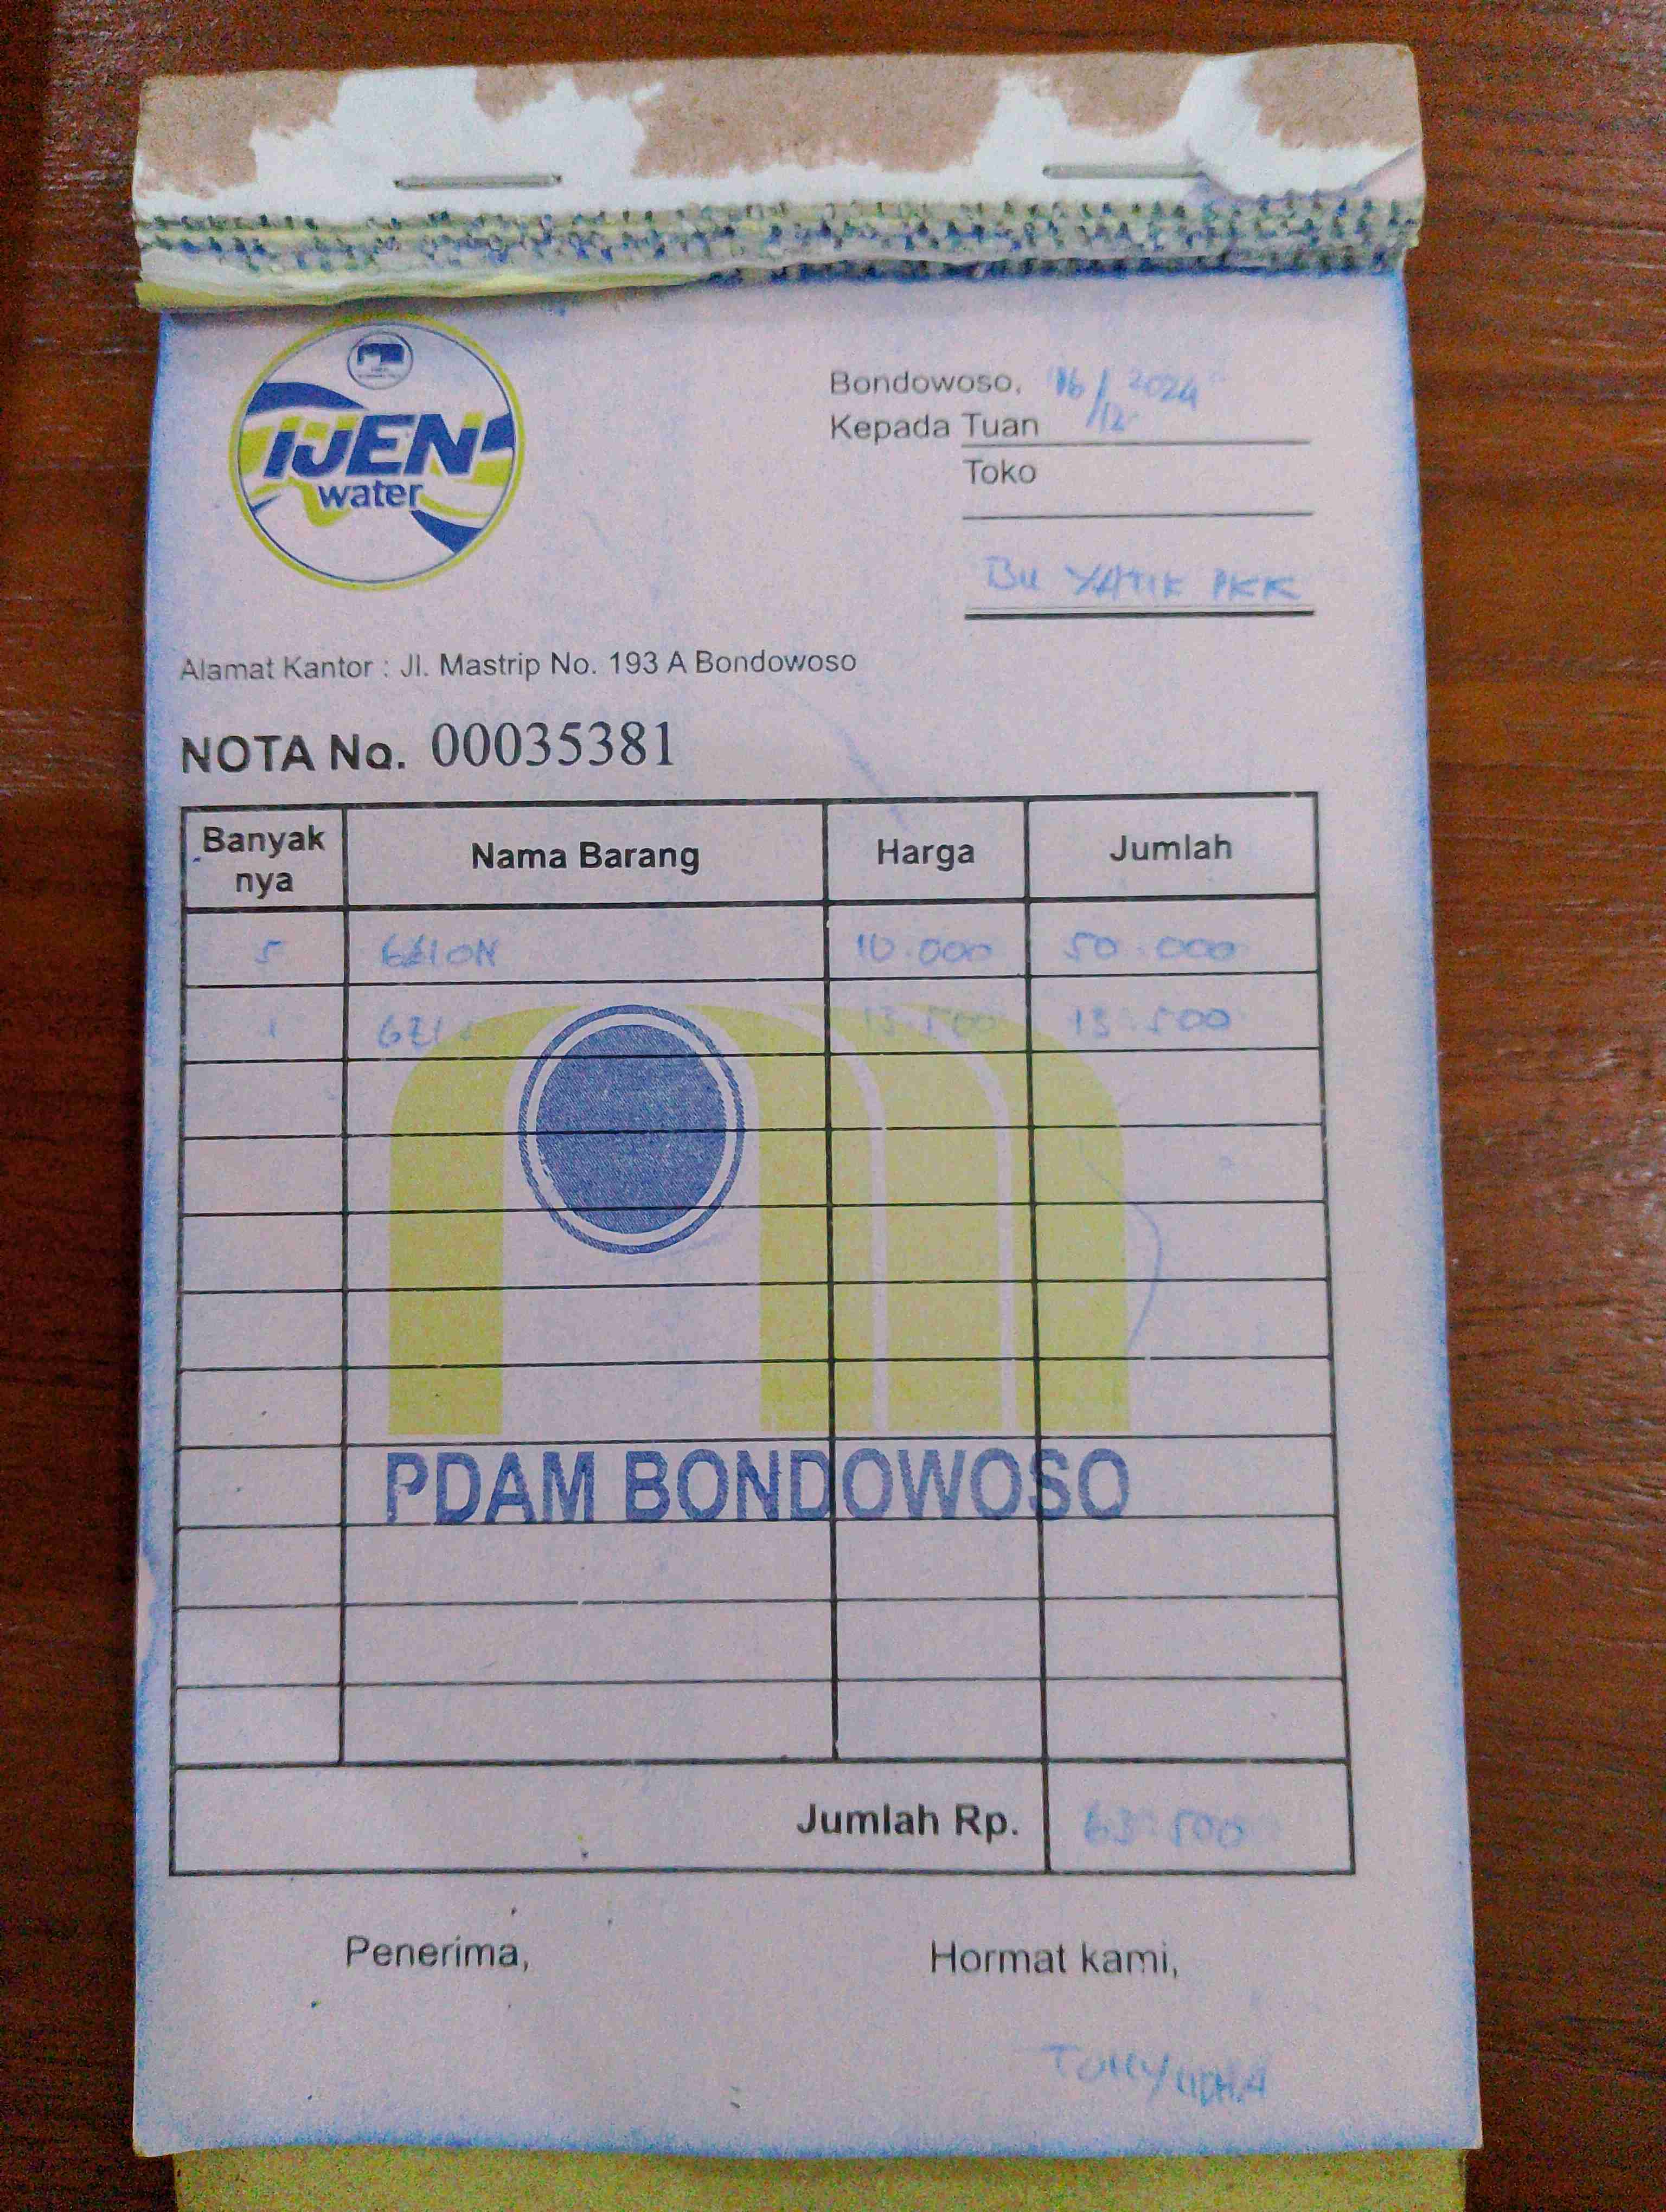 IJEN
water
Bondowoso, 16/12 2024
Kepada Tuan
Toko
BU YATIK PKK
Alamat Kantor : Jl. Mastrip No. 193 A Bondowoso
NOTA No. 00035381
Banyak nya Nama Barang Harga Jumlah
5 10.000 50.000
1 13.500 13.500
PDAM BONDOWOSO
Jumlah Rp. 63.500
Penerima, Hormat kami,